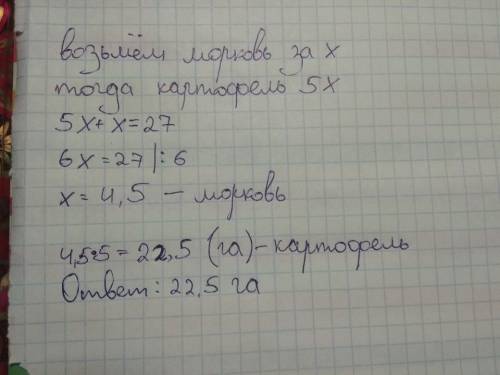 возьмём морковь за x
тогда картофель 5x
5x+x=27
6x=27|:6
x=4,5 – морковь
4,5·5=22,5 (га)-картофель
Ответ: 22,5 га